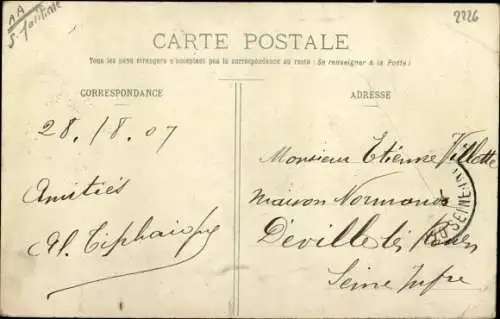 2226
CARTE POSTALE
Tous les pays étrangers n'acceptent pas la correspondance au recto : Se renseigner à la Poste :
CORRESPONDANCE
ADRESSE
28./8.07
Amitiés
Monsieur Etienne Villette
maison Normande
Déville les Rouen
Seine Infre